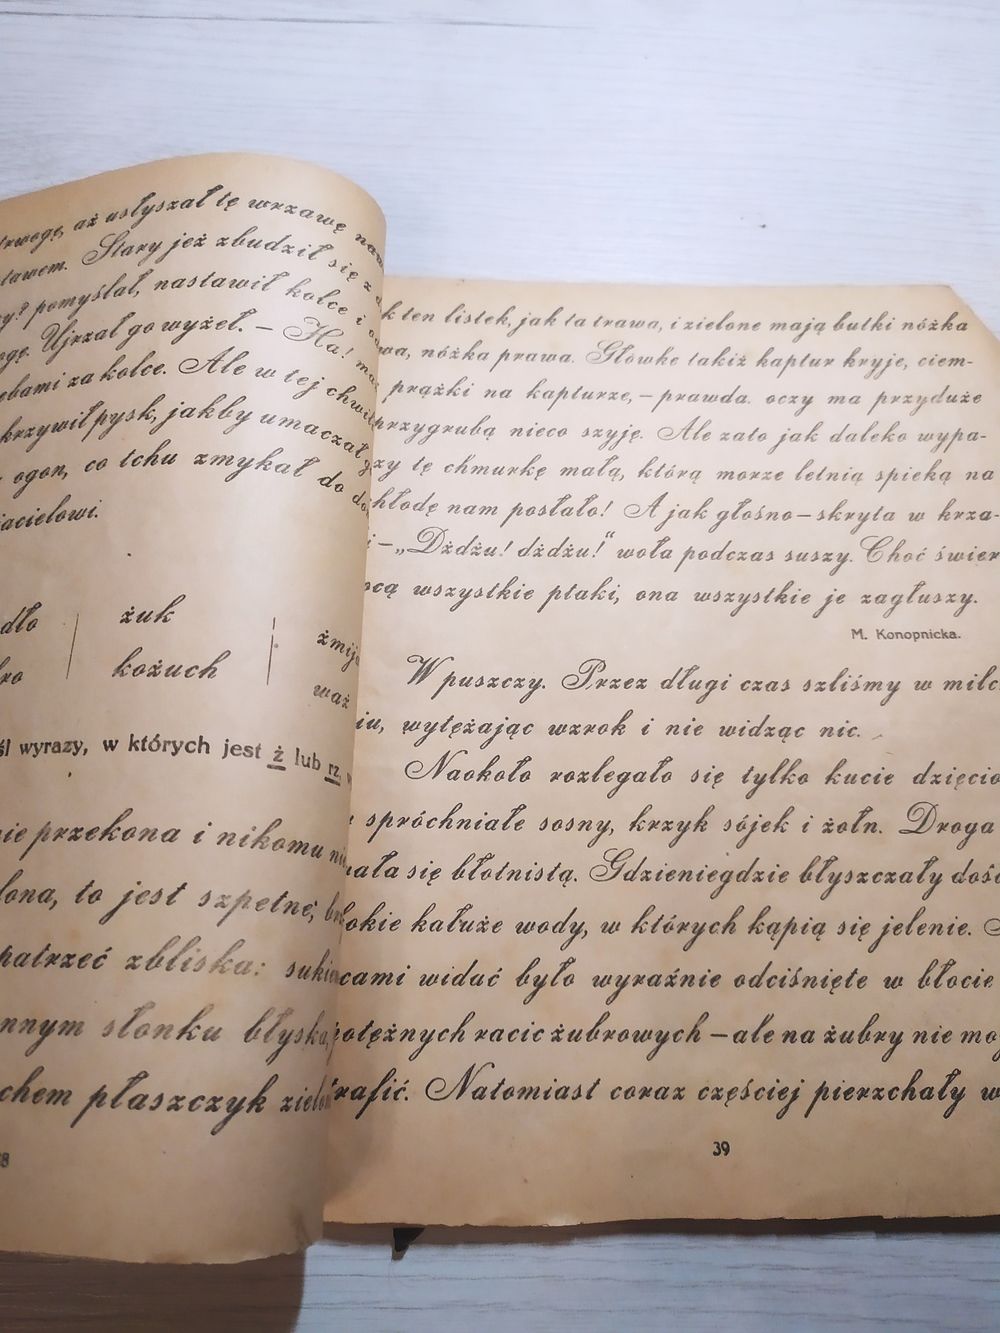 aż usłyszał tę wrzawę
Stary jeż zbudził się z
pomyślał, nastawił kolce i
Ujrzał go wyżeł. – Ha!
za kolce. Ale w tej
krzywił pysk, jakby umaczał
ogon, co tchu zmykał do
żuk
kożuch
wyrazy, w których jest ż lub rz,
przekona i nikomu
to jest szpetne;
zbliska:
słonku
płaszczyk
ten listek, jak ta trawa, i zielone mają butki nóżka
nóżka prawa. Główkę takiż kaptur kryje, ciem-
prążki na kapturze, – prawda. oczy ma przyduże
przygrubą nieco szyję. Ale zato jak daleko wypa-
tę chmurkę małą, którą morze letnią spieką na
nam posłało! A jak głośno – skryta w krza-
– „Dżdżu! dżdżu!" woła podczas suszy. Choć
wszystkie ptaki, ona wszystkie je zagłuszy.
M. Konopnicka.
W puszczy. Przez długi czas szliśmy w
wytężając wzrok i nie widząc nic.
Naokoło rozlegało się tylko kucie
spróchniałe sosny, krzyk sójek i żołn. Droga
się błotnistą. Gdzieniegdzie błyszczały
kałuże wody, w których kąpią się jelenie.
widać było wyraźnie odciśnięte w błocie
racic żubrowych – ale na żubry nie
Natomiast coraz częściej pierzchały
39